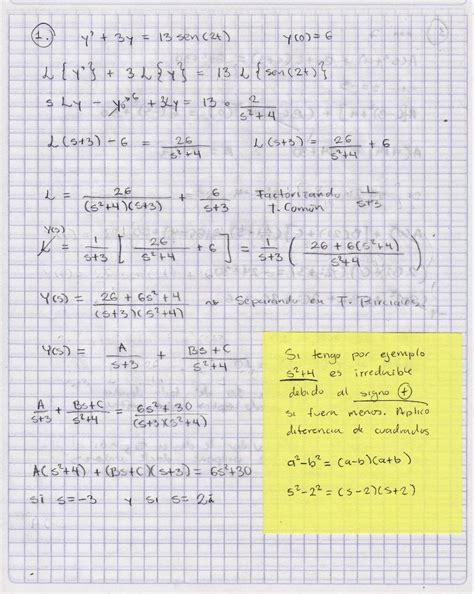 1. y' + 3y = 13 sen(2t)    y(0)=6
L{y'} + 3L{y} = 13 L{sen(2t)}
sLy - y₀ ⁶ + 3Ly = 13 • 2/(s²+4)
L(s+3) - 6 = 26/(s²+4)    L(s+3) = 26/(s²+4) + 6
L = 26/((s²+4)(s+3)) + 6/(s+3)    Factorizando 1/(s+3)
T. Común
Y(s)
L = 1/(s+3) [26/(s²+4) + 6] = 1/(s+3) (26 + 6(s²+4)/(s²+4))
Y(s) = 26 + 6s² + 4/((s+3)(s²+4))    Separando en T. Parciales
Y(s) = A/(s+3) + Bs + C/(s²+4)
A/(s+3) + Bs+C/(s²+4) = 6s² + 30/((s+3)(s²+4))
A(s²+4) + (Bs+C)(s+3) = 6s²+30
si s=-3 y si s= 2i
Si tengo por ejemplo
s²+4 es irreducible
debido al signo (+)
si fuera menos. Aplico
diferencia de cuadrados
a²-b² = (a-b)(a+b)
s²-2² = (s-2)(s+2)